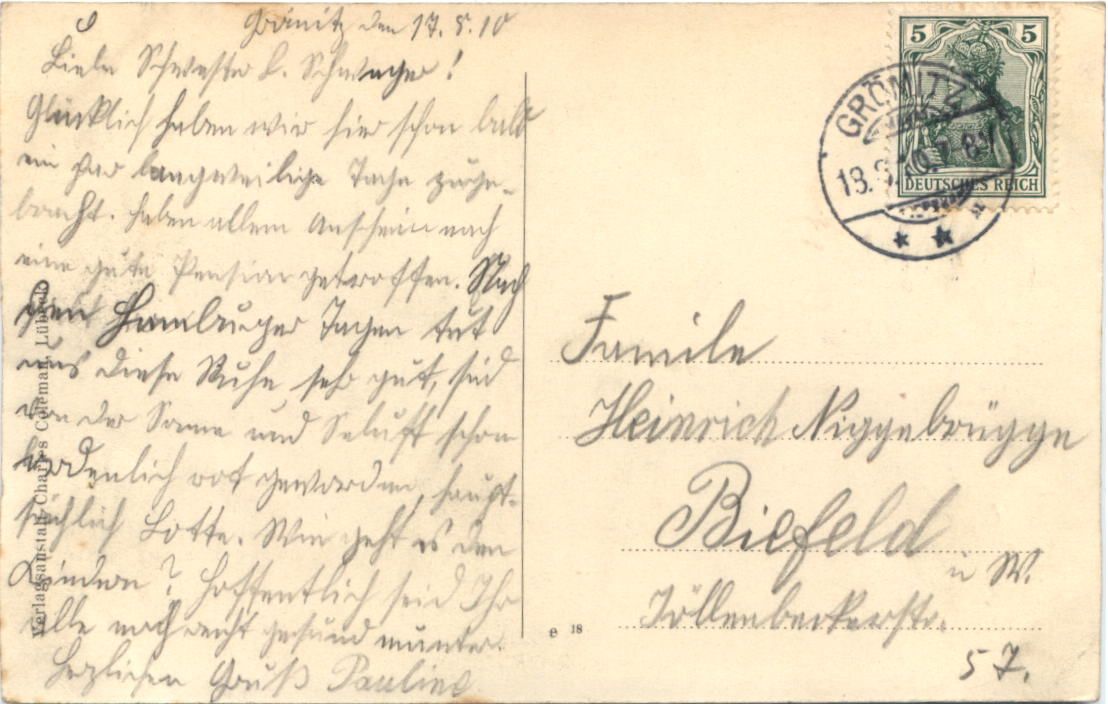 Grömitz den 17. 8. 10
Liebe Schwester u. Schwager!
Glücklich haben wir hier schon bald
ein par langweilige Tage zuge-
bracht. haben allem Anschein nach
eine gute Pension getroffen. Nach
den Hamburger Tagen tut
uns diese Ruhe sehr gut, sind
von der Sonne und Seluft schon
ordenlich rot geworden, haupt-
sächlich Lotte. Wie geht es den
Kindern? Hoffentlich seid Ihr
alle noch recht gesund munter.
Herzlichen Gruß Pauline
Verlagsanstalt Charles Coleman, Lübeck
e 18
5 5
DEUTSCHES REICH
GRÖMITZ
18. 8. 10. 7-8V
Famile
Heinrich Niggebrügge
Biefeld
i W.
Jöllenbeckerstr.
57.